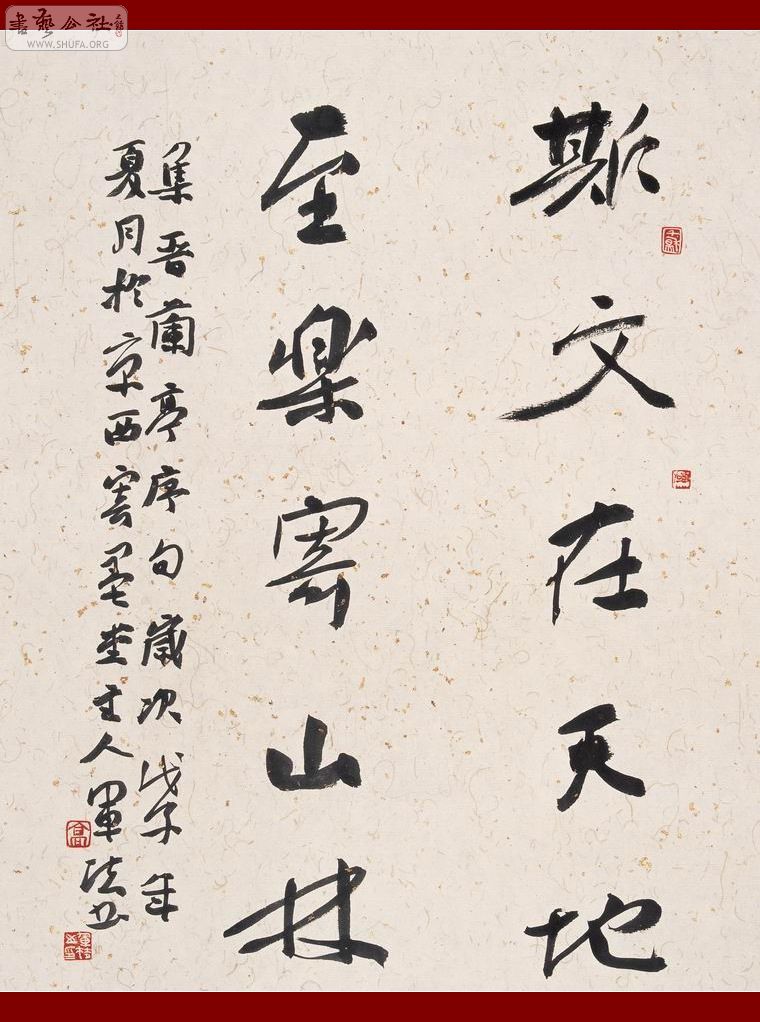 書藝公社
WWW.SHUFA.ORG
斯文在天地
至樂寄山林
集晋蘭亭序句歲次戊子年
夏月於京西容墨堂主人軍法书